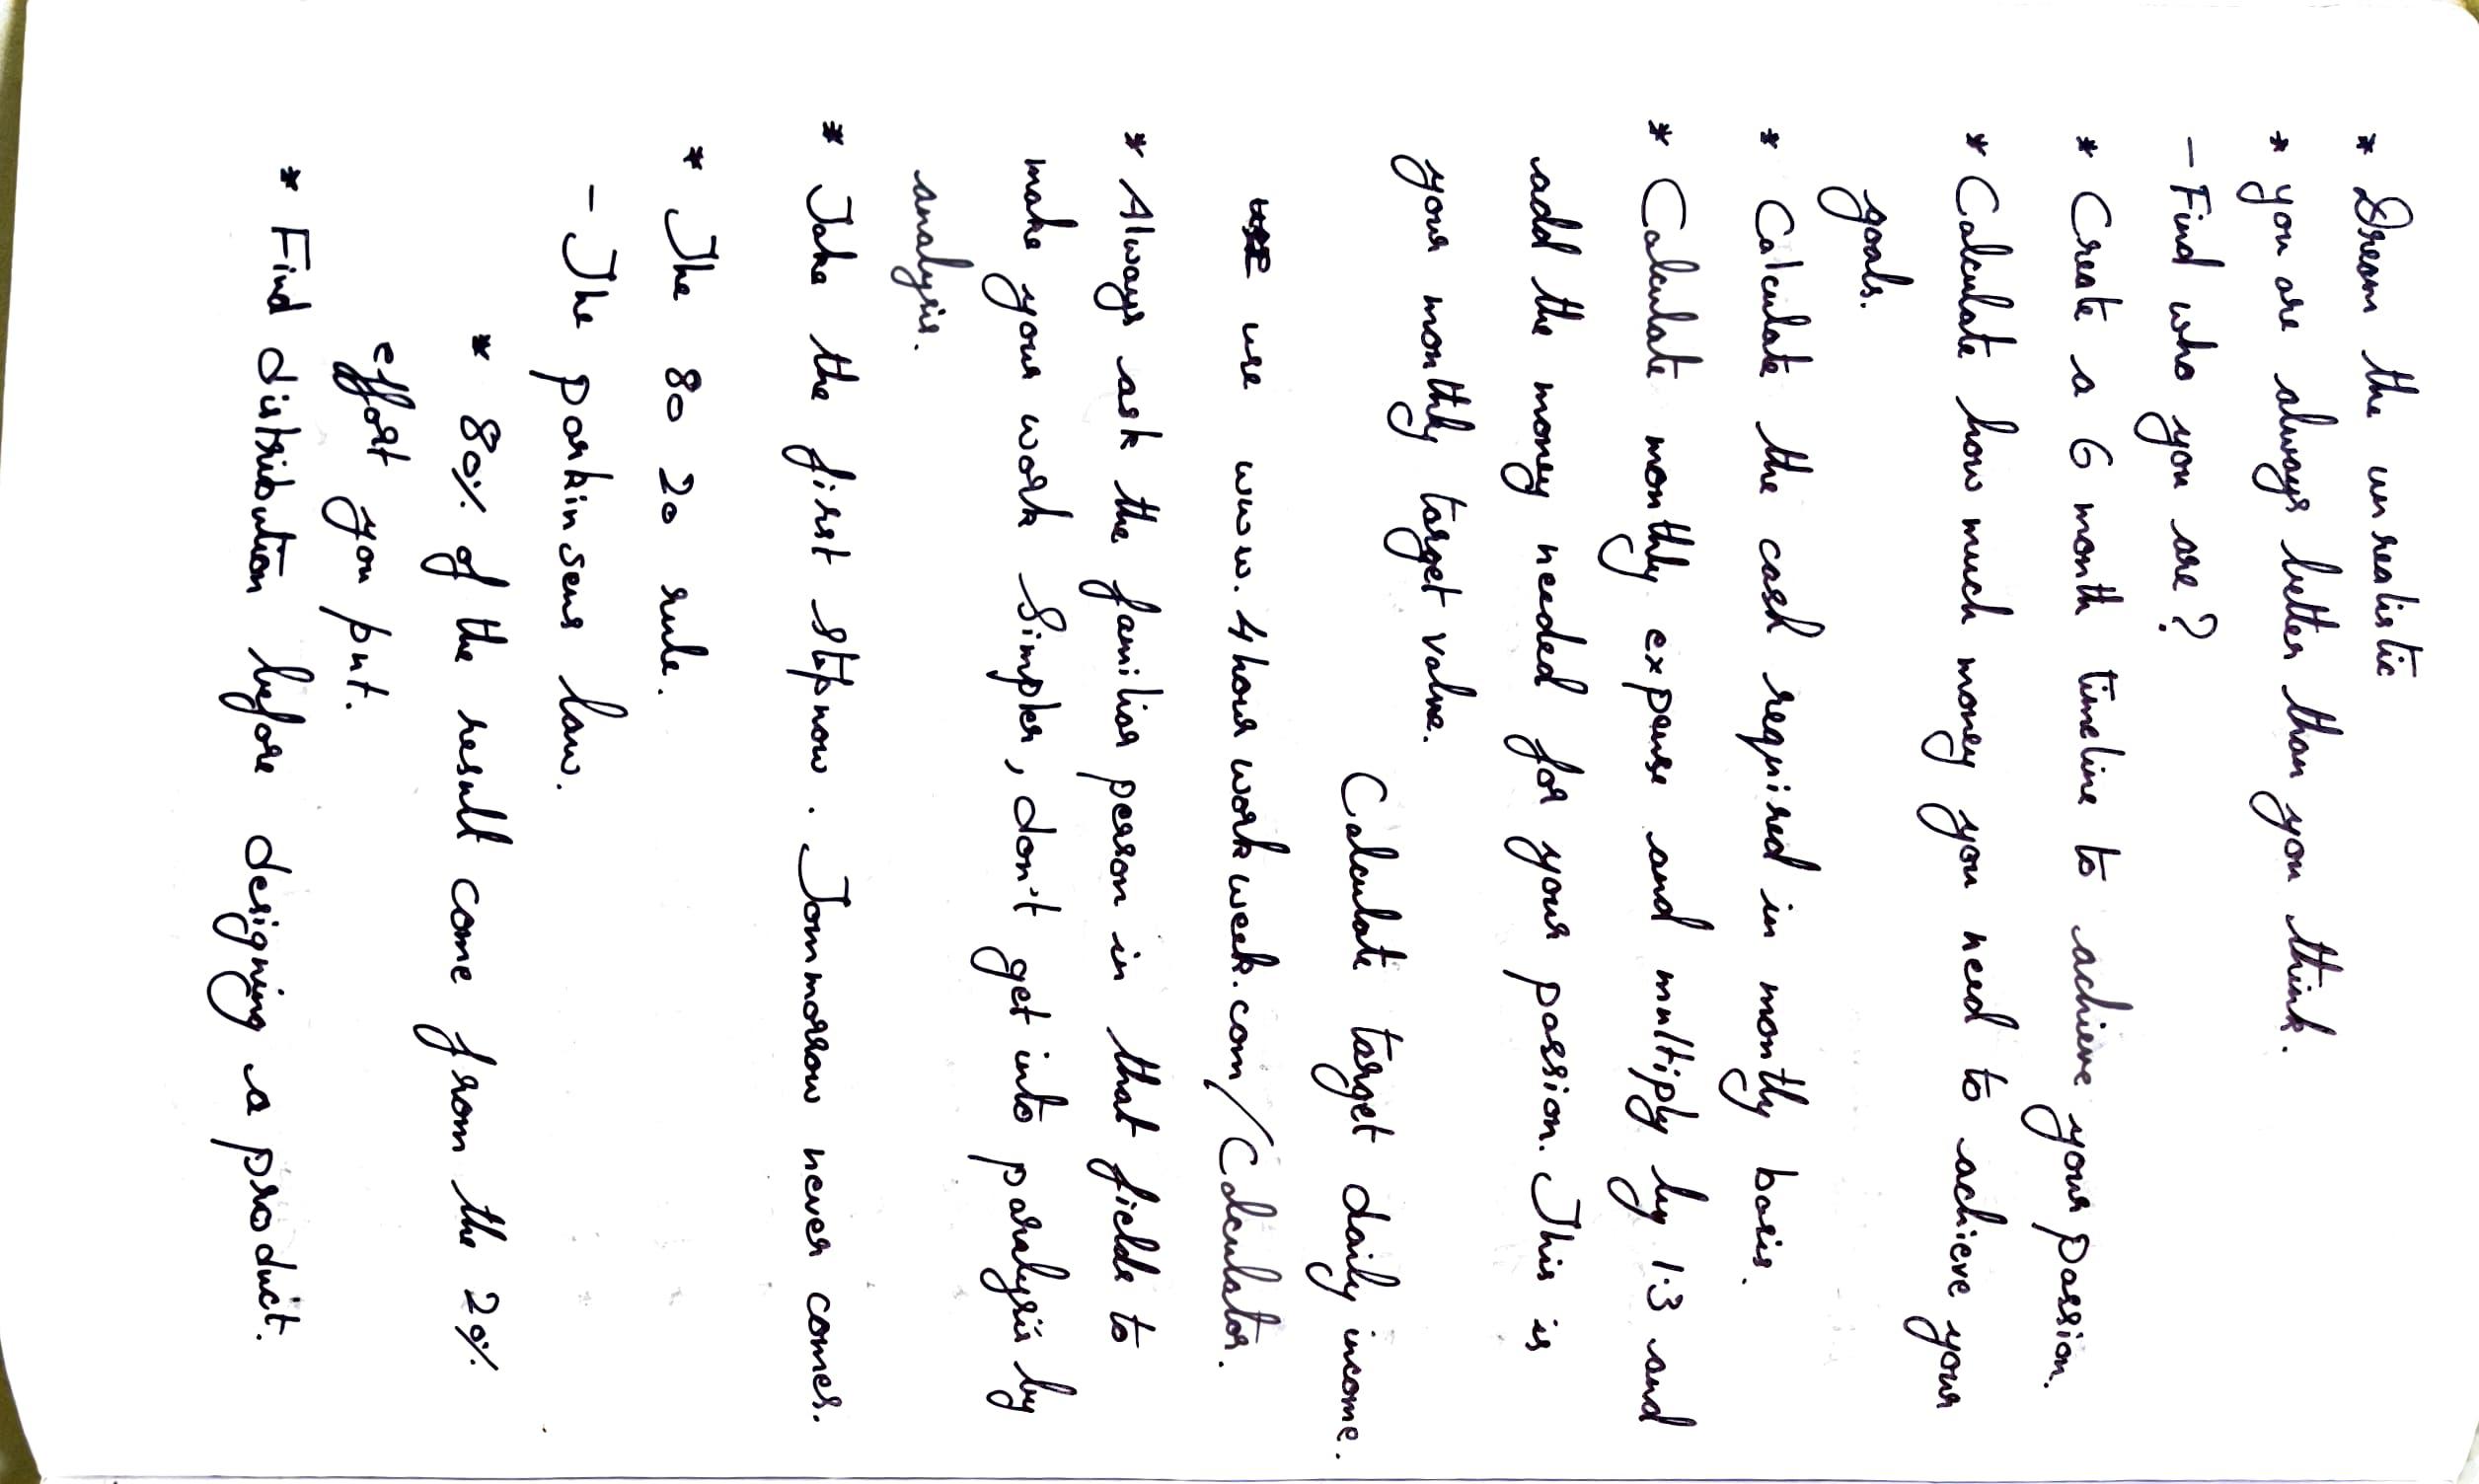 * Dream the unrealistic
* you are always better than you think.
- Find who you are?
* Create a 6 month timeline to achieve your passion.
* Calculate how much money you need to achieve your
goals.
* Calculate the cash required in montly basis.
* Calculate monthly expense and multiply by 1.3 and
add the money needed for your passion. This is
your monthly target value.
Calculate target daily income.
use www.4hourworkweek.com/Calculator.
* Always ask the familiar person in that fields to
make your work Simpler, don't get into paralysis by
analysis.
* Take the first step now. Tommorow never comes.
* The 80 20 rule.
- The parkinsens law.
* 80% of the result come from the 20%
effort you put.
* Find distribution before designing a product.